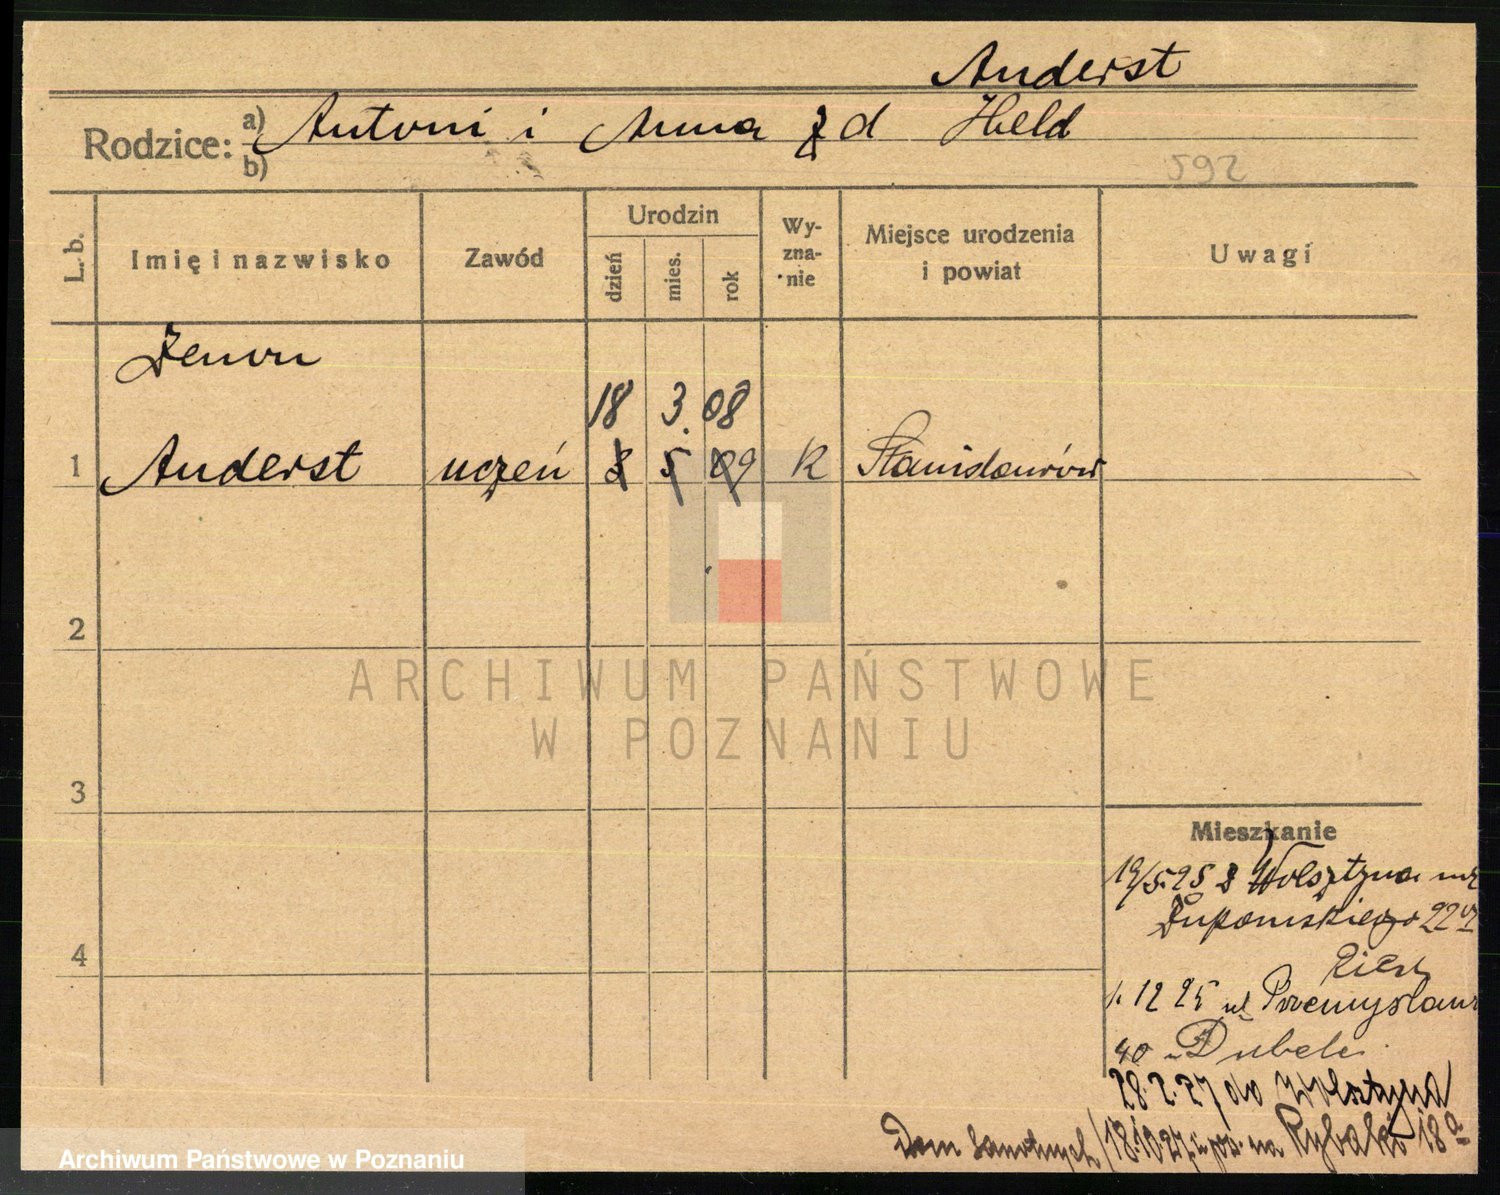 Anderst
Rodzice: a) Antoni i Anna z d Held
b)
592
L. b. Imię i nazwisko Zawód Urodzin dzień mies. rok Wy-zna-nie Miejsce urodzenia i powiat Uwagi
Zenon
18 3. 08
1 Anderst uczeń 8 5 09 R Stanisławów
2
ARCHIWUM PAŃSTWOWE
W POZNANIU
3
Mieszkanie
19/5.25 z Wolsztyna
Łukomskiego 22
4
1. 12 25 ul Przemysława
40 u Dubele
28. 2. 27 do Wolsztyna
Dom 18.10.27 na Rybaki 18a
Archiwum Państwowe w Poznaniu